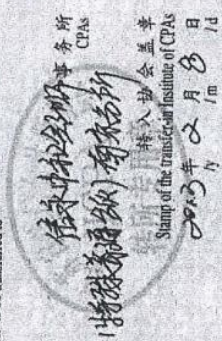 信永中和会计师事务所
CPAs
(特殊普通合伙)
转入协会盖章
Stamp of the transfer-in Institute of CPAs
年 2 月 8 日
/y /m /d